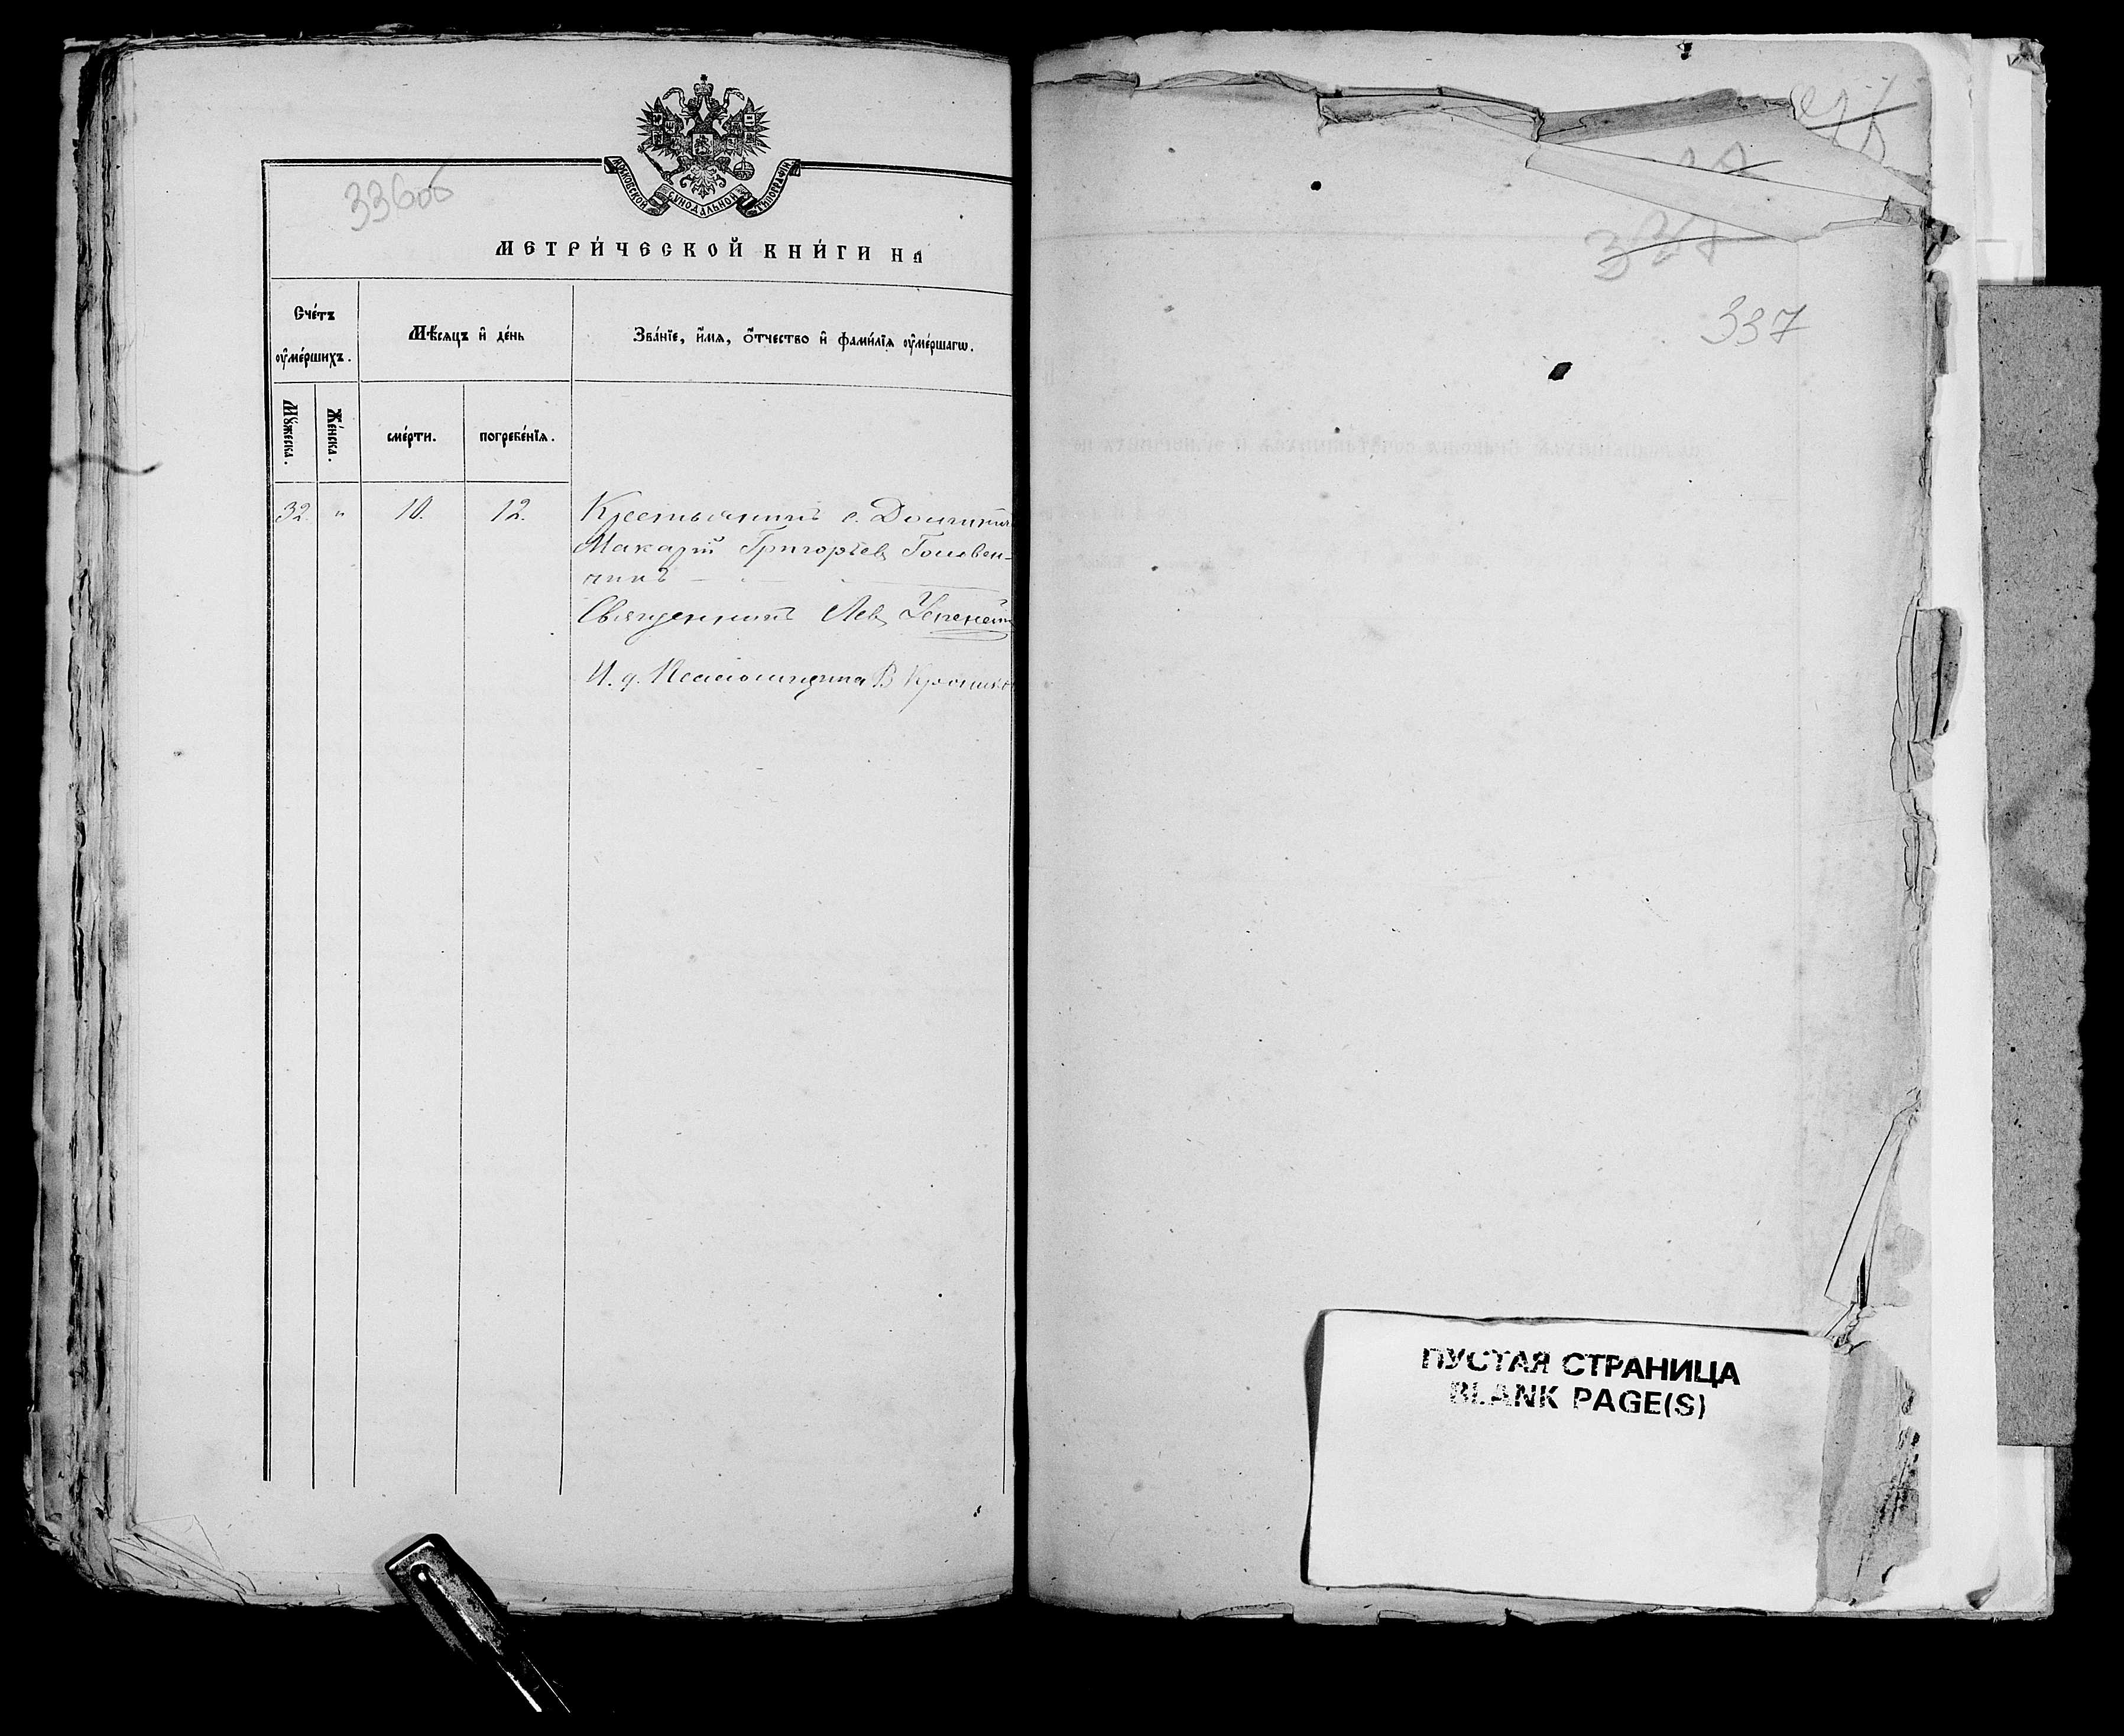 336об
МОСКОВСКОЙ СѴНОДАЛЬНОЙ ТИПОГРАФІИ
МЕТРИ́ЧЕСКОЙ КНИ́ГИ НА
Сче́тъ ᲂу҆ме́ршихъ.
Мѣ́сяцъ и҆ де́нь
Зва́нїе, и҆́мя, ѻ҆́тчество и҆ фами́лїя ᲂу҆ме́ршагѡ.
Мꙋ́жеска.
Же́нска.
сме́рти.
погребе́нїя.
32. " 10. 12. Крестьянинъ с.
Макарій Григорьевъ Головен-
чинъ
Священникъ Левъ
И. д. Псаломщика В
337
337
ПУСТАЯ СТРАНИЦА
BLANK PAGE(S)